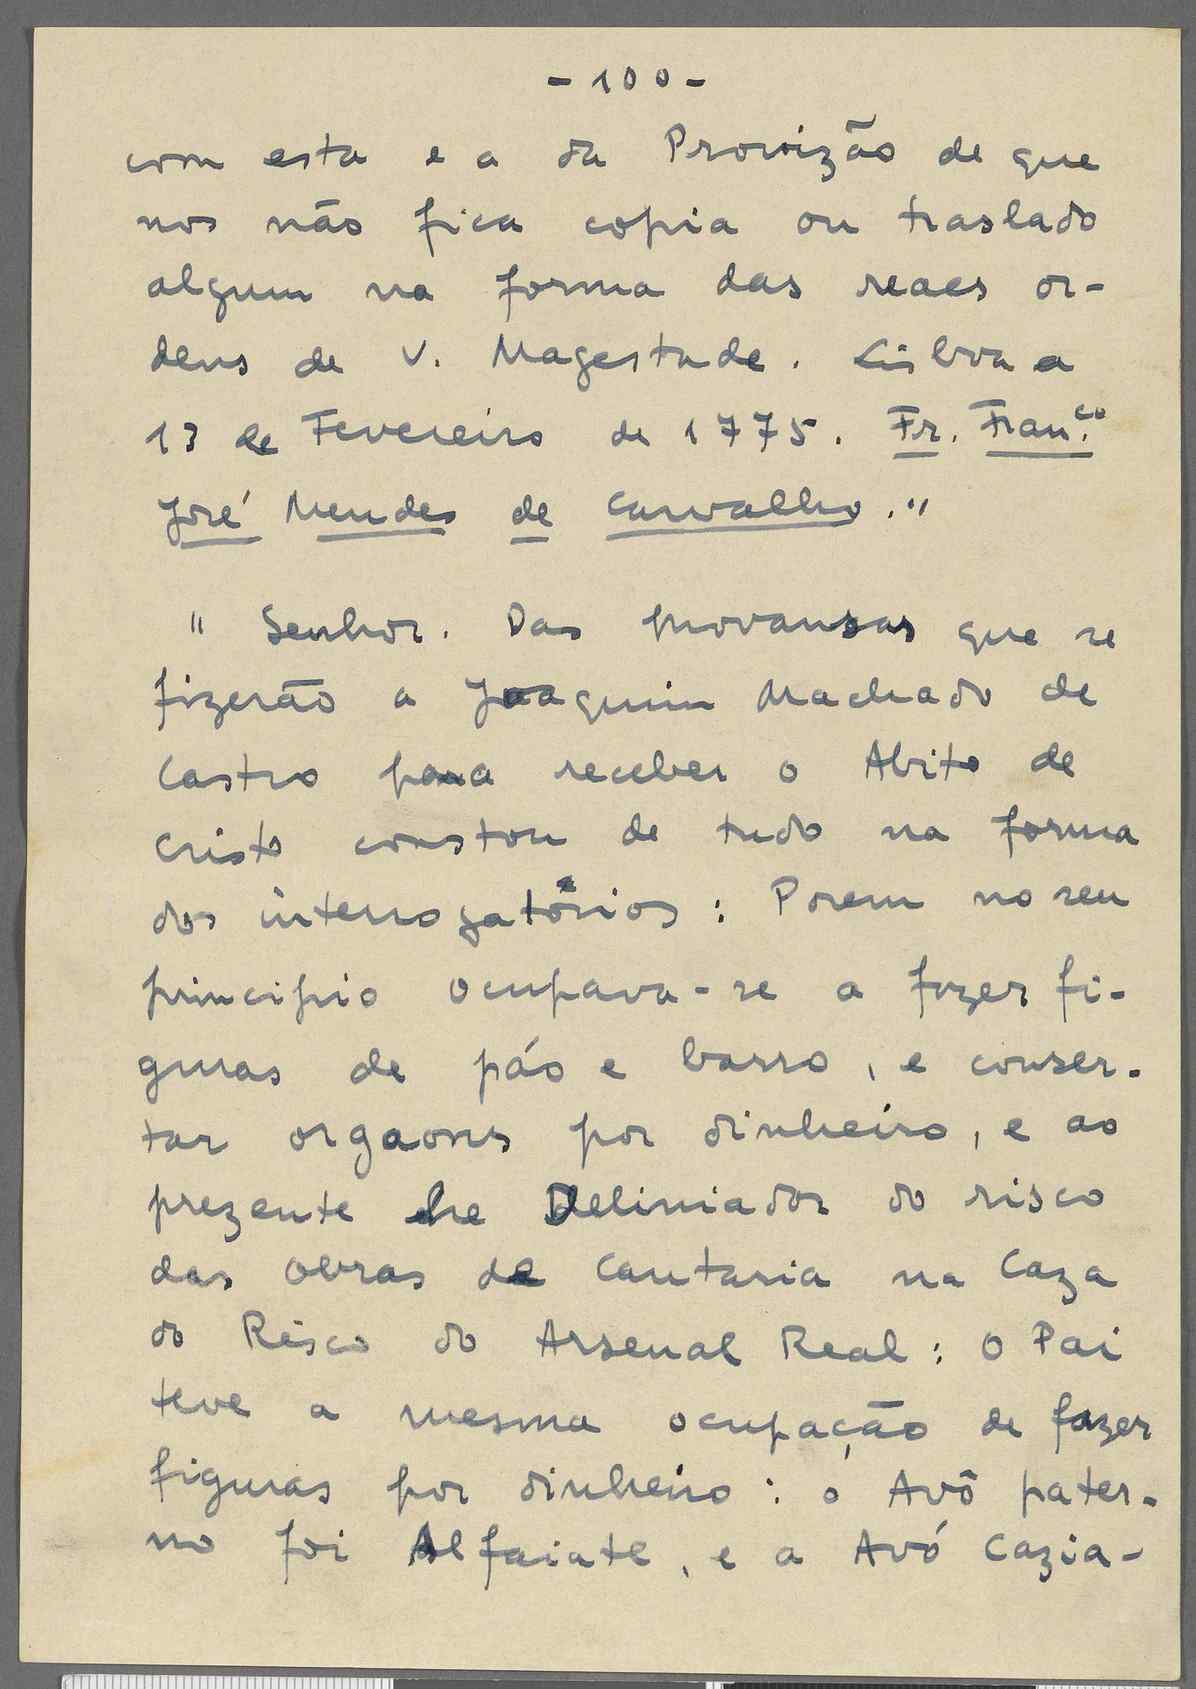 - 100 -
com esta e a da Provizão de que
nos não fica copia ou traslado
algum na forma das reaes or-
dens de V. Magestade. Lisboa a
13 de Fevereiro de 1775. Fr. Fran.co
José Mendes de Carvalho."
" Senhor. Das provansas que se
fizerão a Joaquim Machado de
Castro para receber o Abito de
Cristo constou de tudo na forma
dos interrogatórios: Porem no seu
principio ocupava-se a fazer fi-
guras de páo e barro, e conser-
tar orgaons por dinheiro, e ao
prezente he Deliniador do risco
das obras de Cantaria na Caza
do Risco do Arsenal Real: O Pai
teve a mesma ocupação de fazer
figuras por dinheiro: o Avô pater-
no foi Alfaiate, e a Avó Cazia-